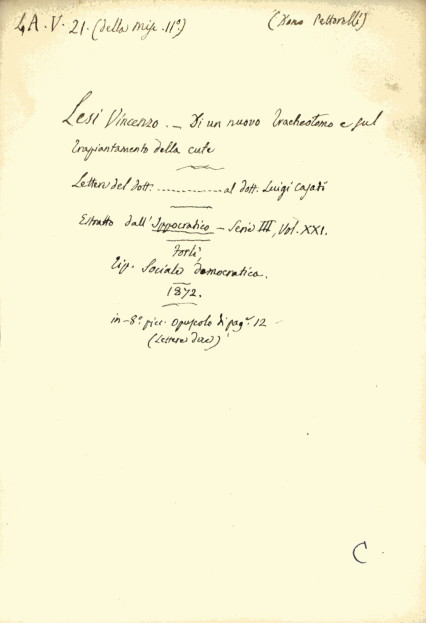 4.A.V. 21. (della Misc. 11ª)
(Dono Pettorelli)
Lesi Vincenzo. — Di un nuovo Tracheotomo e sul
trapiantamento della cute
Lettere del dott. ............... al dott. Luigi Casati
Estratto dall'Ippocratico — Serie III, Vol. XXI.
Forlì
Tip. Sociale democratica.
1872.
in-8º picc. Opuscolo di pagº 12
(Lettere due)
C